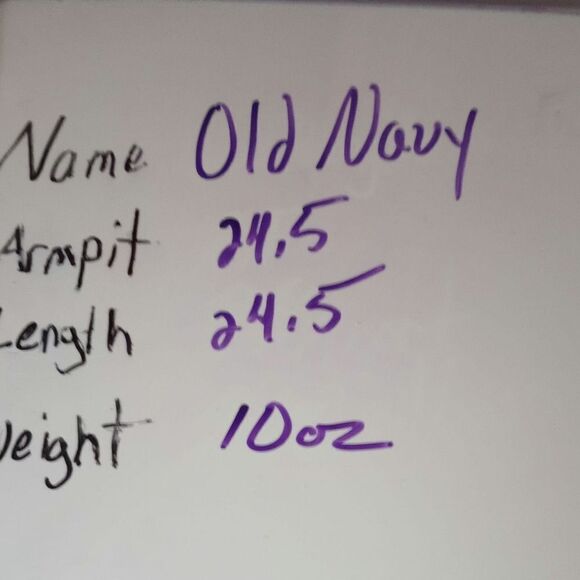 Name Old Navy
Armpit 24.5
Length 24.5
Weight 10oz